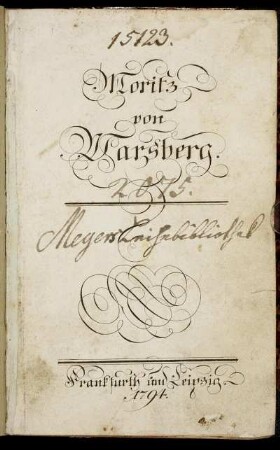 15123.
Moritz
von
Marsberg.
2075.
Meyers Leihebibliothek
Frankfurth und Leipzig
1794.